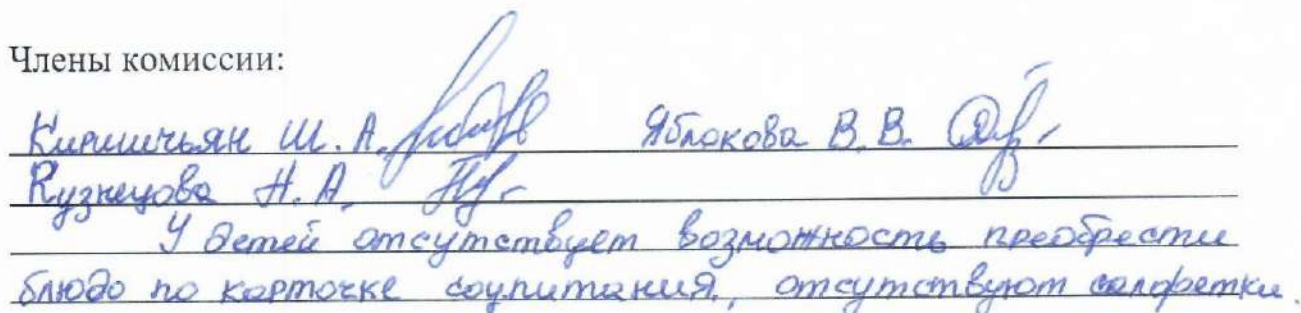 Члены комиссии:
Ш. А. Яблокова В. В.
Кузнецова Н. А.
У детей отсутствует возможность преобрести
блюдо по карточке соупитания, отсутствуют салфетки.